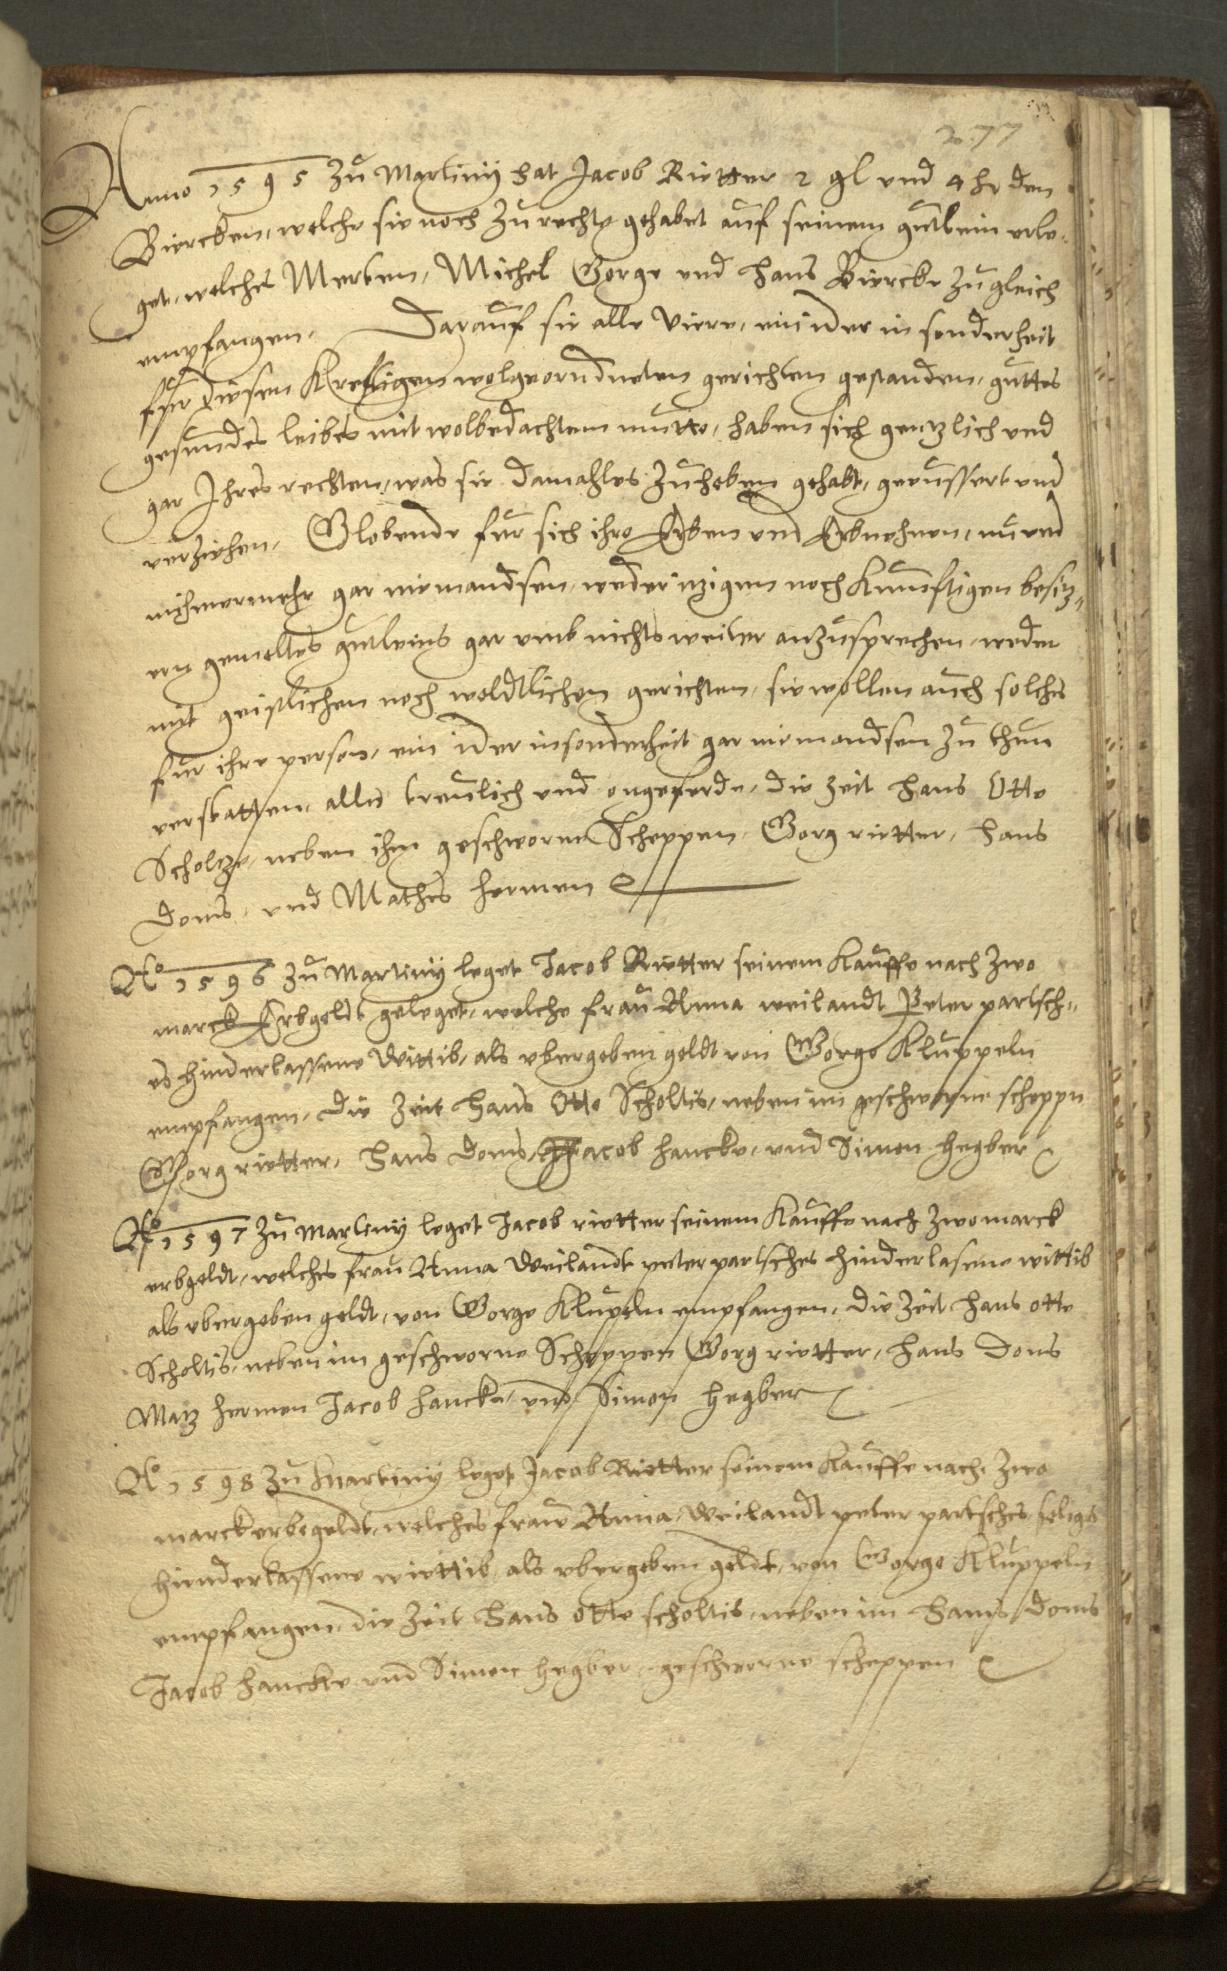 277
Anno 1595 Zu Martiny hat Jacob Rietter 2 gl und 4 hr den
Biercken, welche sie noch Zu rechte gehabet auf seinem gutlein erle-
get, welches Merten, Michel Gorge und Hans Biercke Zu gleich
empfangen, Darauf sie alle Viere, ein ider in sonderheit
fur diesen Kreftigen wolgeorndneten gerichten gestanden, guttes
gesundes leibes mit wolbedachtem mutte, haben sich gentzlich und
gar Ihres rechten, was sie damahles Zu heben gehabt, geeussert und
verziehen, Globende fur sich ihre Erben und Erbnehmen, nu und
nichmermehr gar niemandsen, weder itzigen noch Kunnftigen besitz,,
ern gemeltes gutleins gar umb nichts weiter anzusprechen, weder
mit geistlichen noch weldtlichen gerichten, sie wollen auch solches
fur ihre person, ein ider in sonderheit gar niemandsen Zu thun
verstatten, alles treulich und ongeferde, die Zeit Hans Otto
Scholtze, neben ihm geschworne Scheppen, Gorg rietter, Hans
Doms, und Mathes hermen
Ao 1596 Zu Martiny leget Jacob Rietter seinem Kauffe nach Zwo
marck Erbgeldt geleget, welche frau Anna weilandt Peter partsch,,
es hinderlassene Wittib, als ubergeben geldt von Gorge Kluppeln
empfangen, die Zeit Hans Otto Scholtis, neben im geschworne scheppn
Gorg rietter, Hans Doms, Jacob hancke, und Simon hegber
Ao 1597 Zu Martiny leget Jacob rietter seinem Kauffe nach Zwo marck
erbgeldt, welches frau Anna Weilandt peter partsches hinderlasene wittib
als ubergeben geldt, von Gorge Klupeln empfangen, die Zeit Hans otto
Scholtis, neben im geschworne Scheppen Gorg rietter, Hans Doms
Matz hermen Jacob hancke, und Simon hegber
Ao 1598 Zu Martiny leget Jacob Rietter seinem Kauffe nach Zwo
marck erbegeldt, welches frau Anna, Weilandt peter partsches seliges
hinderlassene wiettib als ubergeben geldt, von Gorge Kluppeln
empfangen, die Zeit Hans otto scholtis, neben im Hans Doms
Jacob hancke und Simon hegber, geschworne scheppen